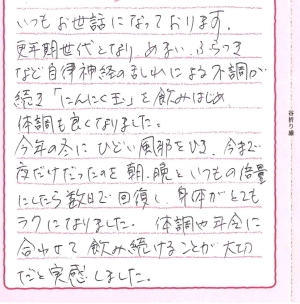 いつもお世話になっております。
更年期世代となり、めまい、ふらつき
など自律神経の乱れによる不調が
続き「にんにく玉」を飲みはじめ、
体調も良くなりました。
今年の冬にひどい風邪をひき、今まで
夜だけだったのを朝、晩といつもの倍量
にしたら数日で回復し、身体がとても
ラクになりました。 体調や年令に
合わせて飲み続けることが大切
だと実感しました。
谷折り線